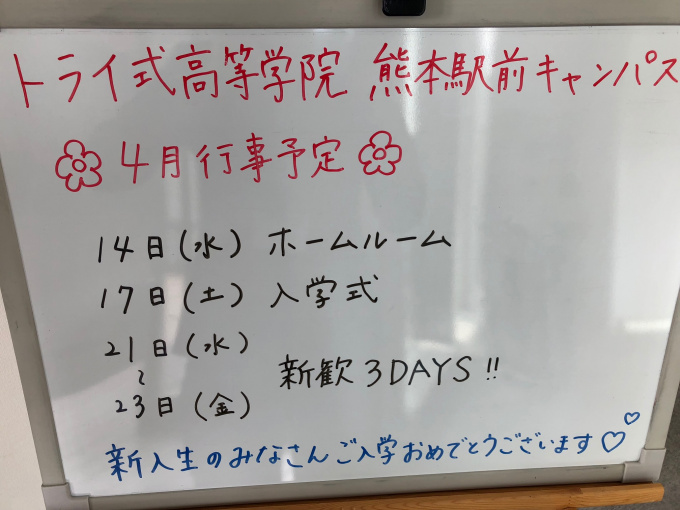 トライ式高等学院 熊本駅前キャンパス
4月行事予定
14日(水) ホームルーム
17日(土) 入学式
21日(水)
~
23日(金)
新歓3DAYS!!
新入生のみなさんご入学おめでとうございます♡♡